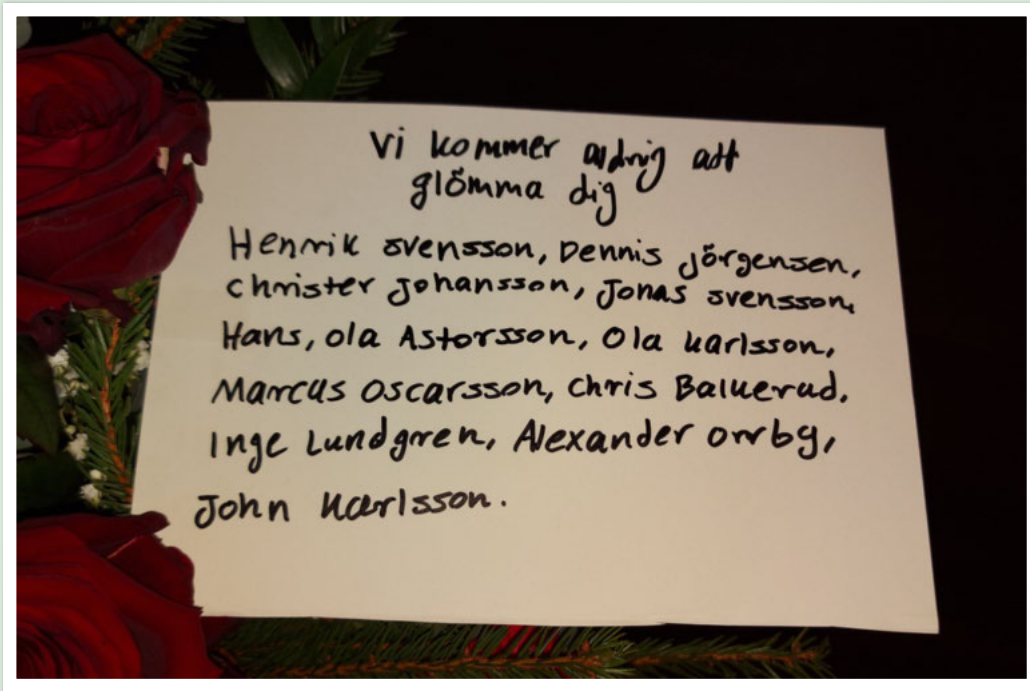 Vi kommer aldrig att
glömma dig
Henrik Svensson, Dennis Jörgensen,
Christer Johansson, Jonas Svensson,
Hans, Ola Astorsson, Ola Karlsson,
Marcus Oscarsson, Chris Balkerud,
Inge Lundgren, Alexander Orrby,
John Karlsson.